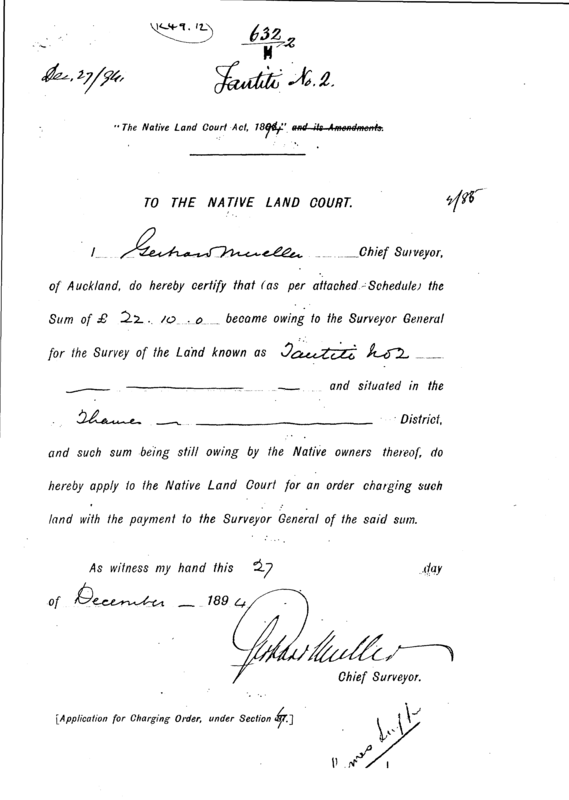 (K49.12)
632 2
M
Dec. 27/94.
Tautiti No. 2.
"The Native Land Court Act, 1894," and its Amendments.
TO THE NATIVE LAND COURT.
I Gerhard Mueller Chief Surveyor,
of Auckland, do hereby certify (as per attached Schedule) the
Sum of £ 22. 10. 0 became owing to the Surveyor General
for the Survey of the Land known as Tautiti No 2
and situated in the
Thames District,
and such sum being still owing by the Native owners thereof, do
hereby apply to the Native Land Court for an order charging such
land with the payment to the Surveyor General of the said sum.
As witness my hand this 27 day
of December 1894
Gerhard Mueller
Chief Surveyor.
[Application for Charging Order, under Section